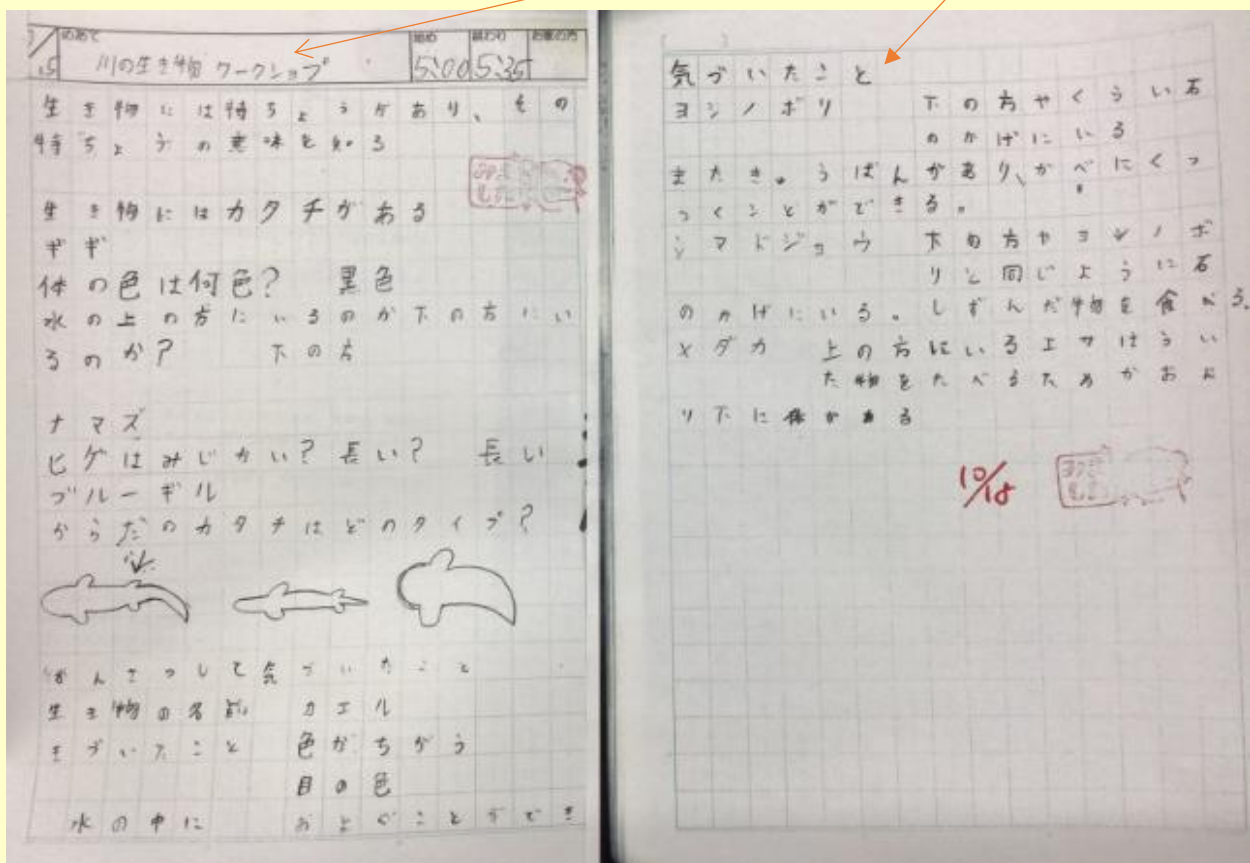 のあて 始め 終わり お家の方
川の生き物 ワークショップ 5:00 5:35
生き物には特ちょうがあり、その
特ちょうの意味を知る
生き物にはカタチがある
ギギ
体の色は何色? 黒色
水の上の方にいるのか下の方にい
るのか? 下の方
ナマズ
ヒゲはみじかい?長い? 長い
ブルーギル
からだのカタチはどのタイプ?
かんさつして気づいたこと
生き物の名前 カエル
きづいたこと 色がちがう
目の色
水の中に およぐことができ
気づいたこと
ヨシノボリ 下の方やくらい石
のかげにいる
またきゅうばんがあり、かべにくっ
つくことができる。
シマドジョウ 下の方やヨシノボ
リと同じように石
のかげにいる。しずんだ物を食べる。
メダカ 上の方にいるエサはうい
た物をたべるためか
り下に体がある
10/18